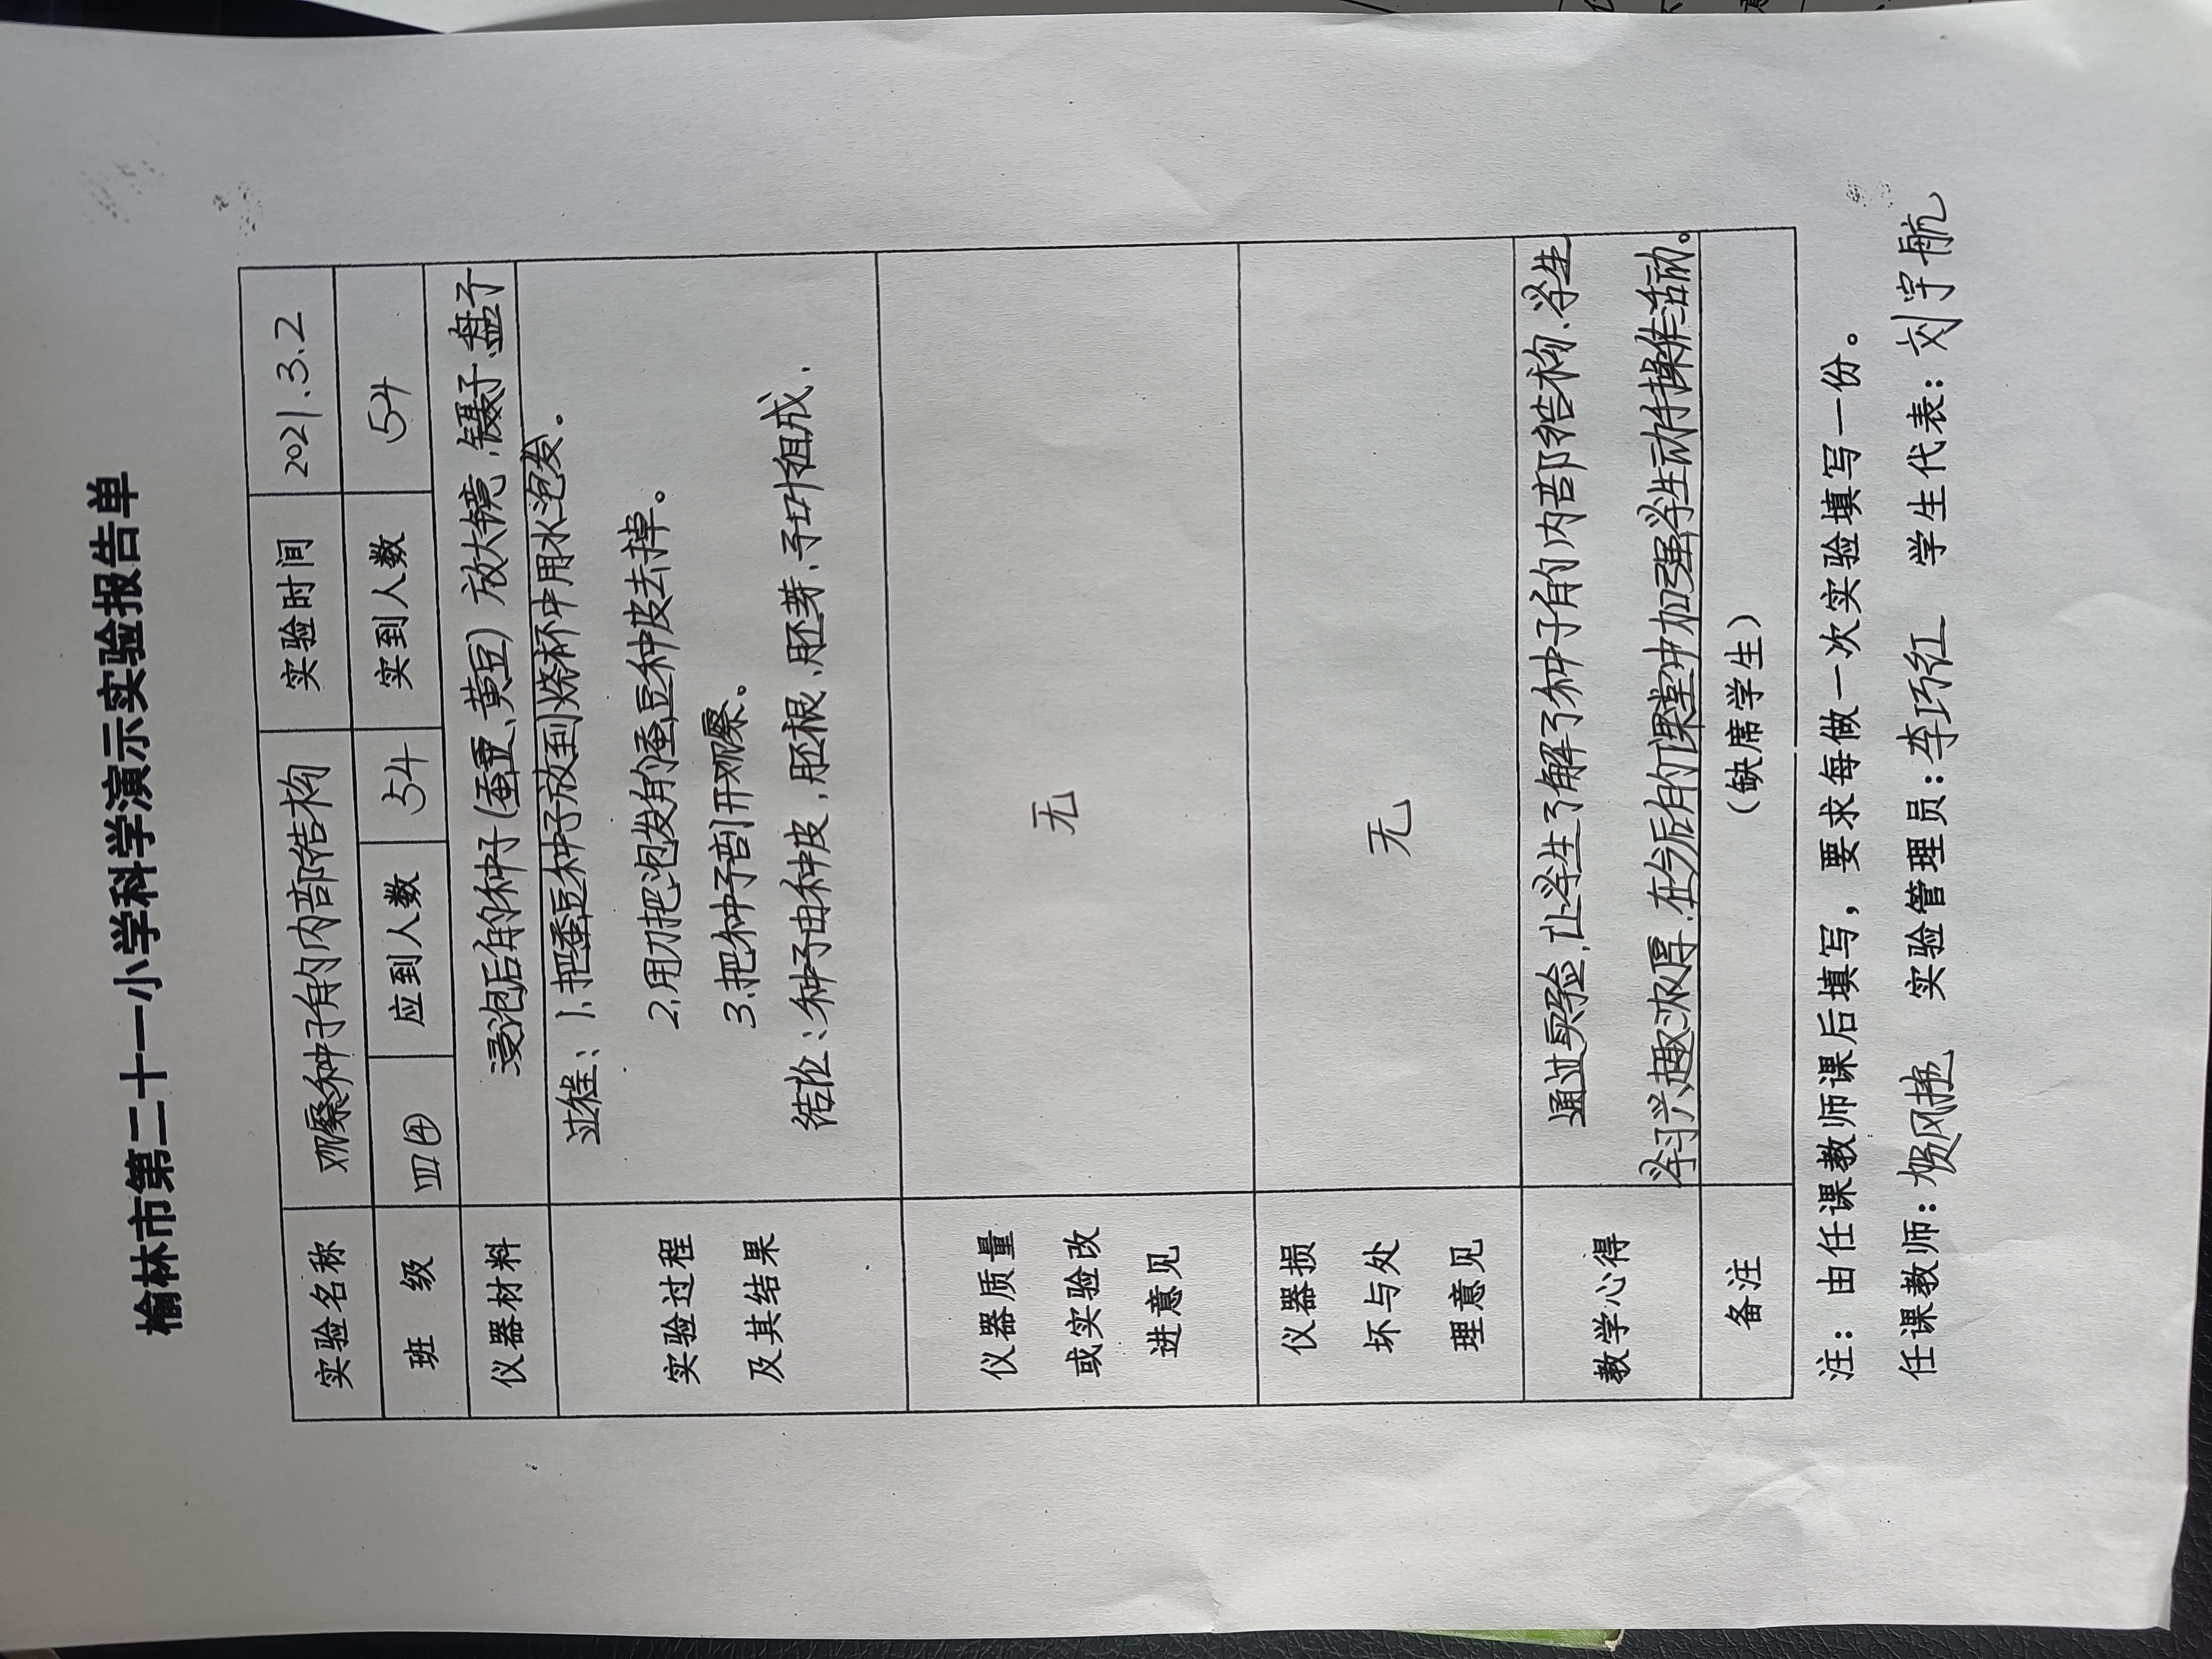 榆林市第二十一小学科学演示实验报告单
实验名称 观察种子的内部结构 实验时间 2021.3.2
班 级 四④ 应到人数 54 实到人数 54
仪器材料 浸泡后的种子(蚕豆、黄豆) 放大镜、镊子、盘子
实验过程
及其结果
过程：1、把蚕豆种子放到烧杯中用水泡发。
2、用刀把泡发的蚕豆种皮去掉。
3、把种子剖开观察。
结论：种子由种皮、胚根、胚芽、子叶组成.
仪器质量
或实验改
进意见
无
仪器损
坏与处
理意见
无
教学心得
通过实验，让学生了解了种子的内部结构.学生
学习兴趣浓厚.在今后的课堂中加强学生动手操作活动。
备注 （缺席学生）
注：由任课教师课后填写，要求每做一次实验填写一份。
任课教师：贺风艳 实验管理员：李巧红 学生代表：刘宇航